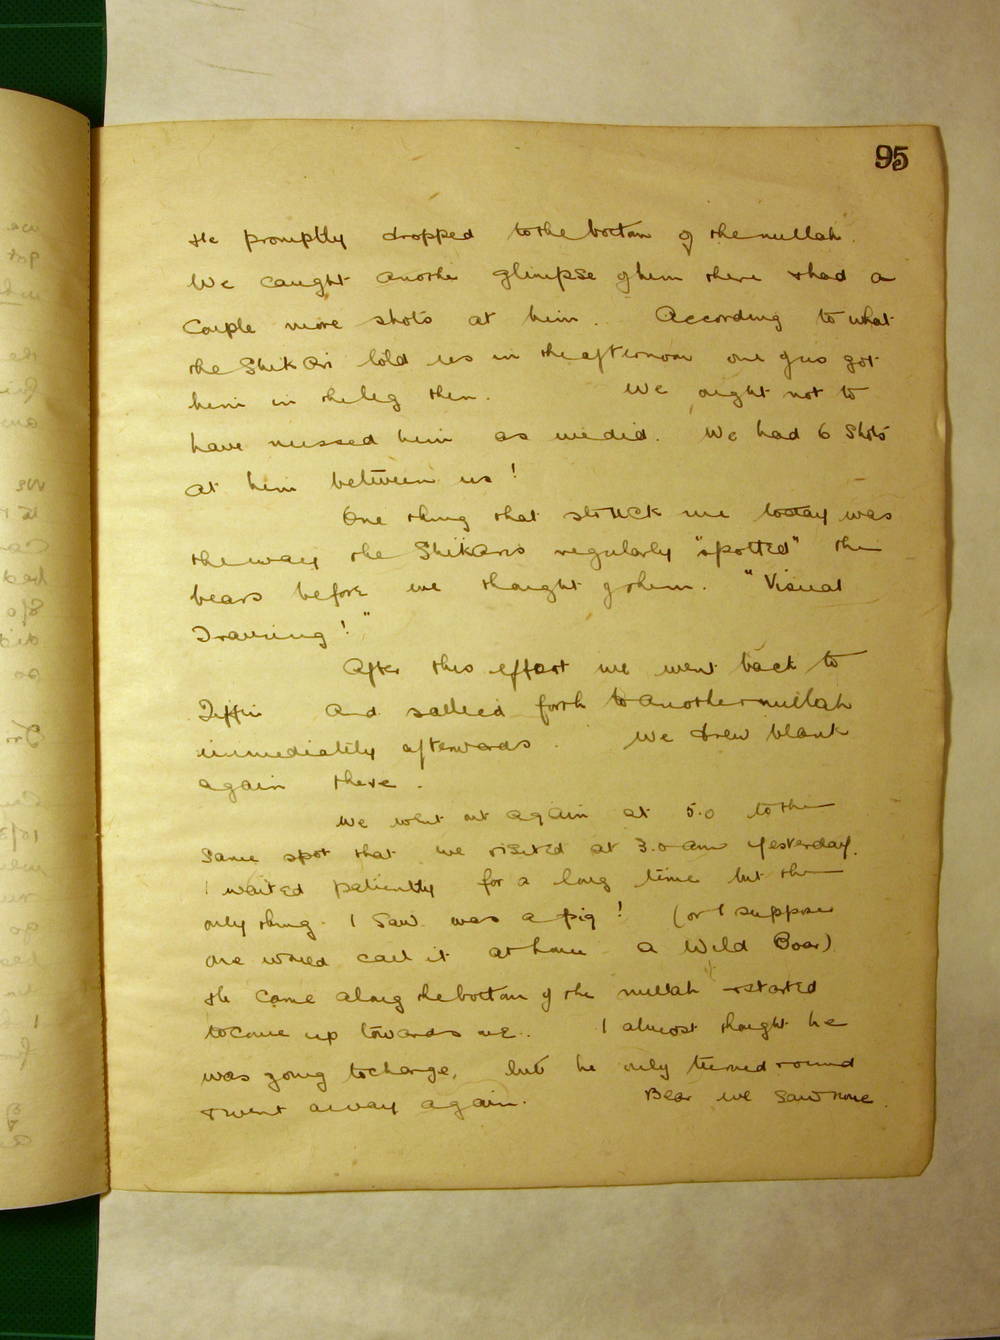 95
He promptly dropped to the bottom of the nullah.
We caught another glimpse of him there & had a
couple more shots at him. According to what
the Shikari told us in the afternoon one of us got
him in the leg then. We ought not to
have missed him as we did. We had 6 shots
at him between us!
One thing that struck me today was
the way the Shikaris regularly "spotted" the
bears before we thought of them. "Visual
Training!"
After this effort we went back to
Tiffin and sallied forth to another nullah
immediately afterwards. We drew blank
again there.
We went out again at 5.0 to the
same spot that we visited at 3.0 am yesterday.
I waited patiently for a long time but the
only thing I saw was a pig! (or I suppose
one would call it at home a Wild Boar)
He came along the bottom of the nullah & started
to come up towards me. I almost thought he
was going to charge, but he only turned round
& went away again. Bear we saw none.